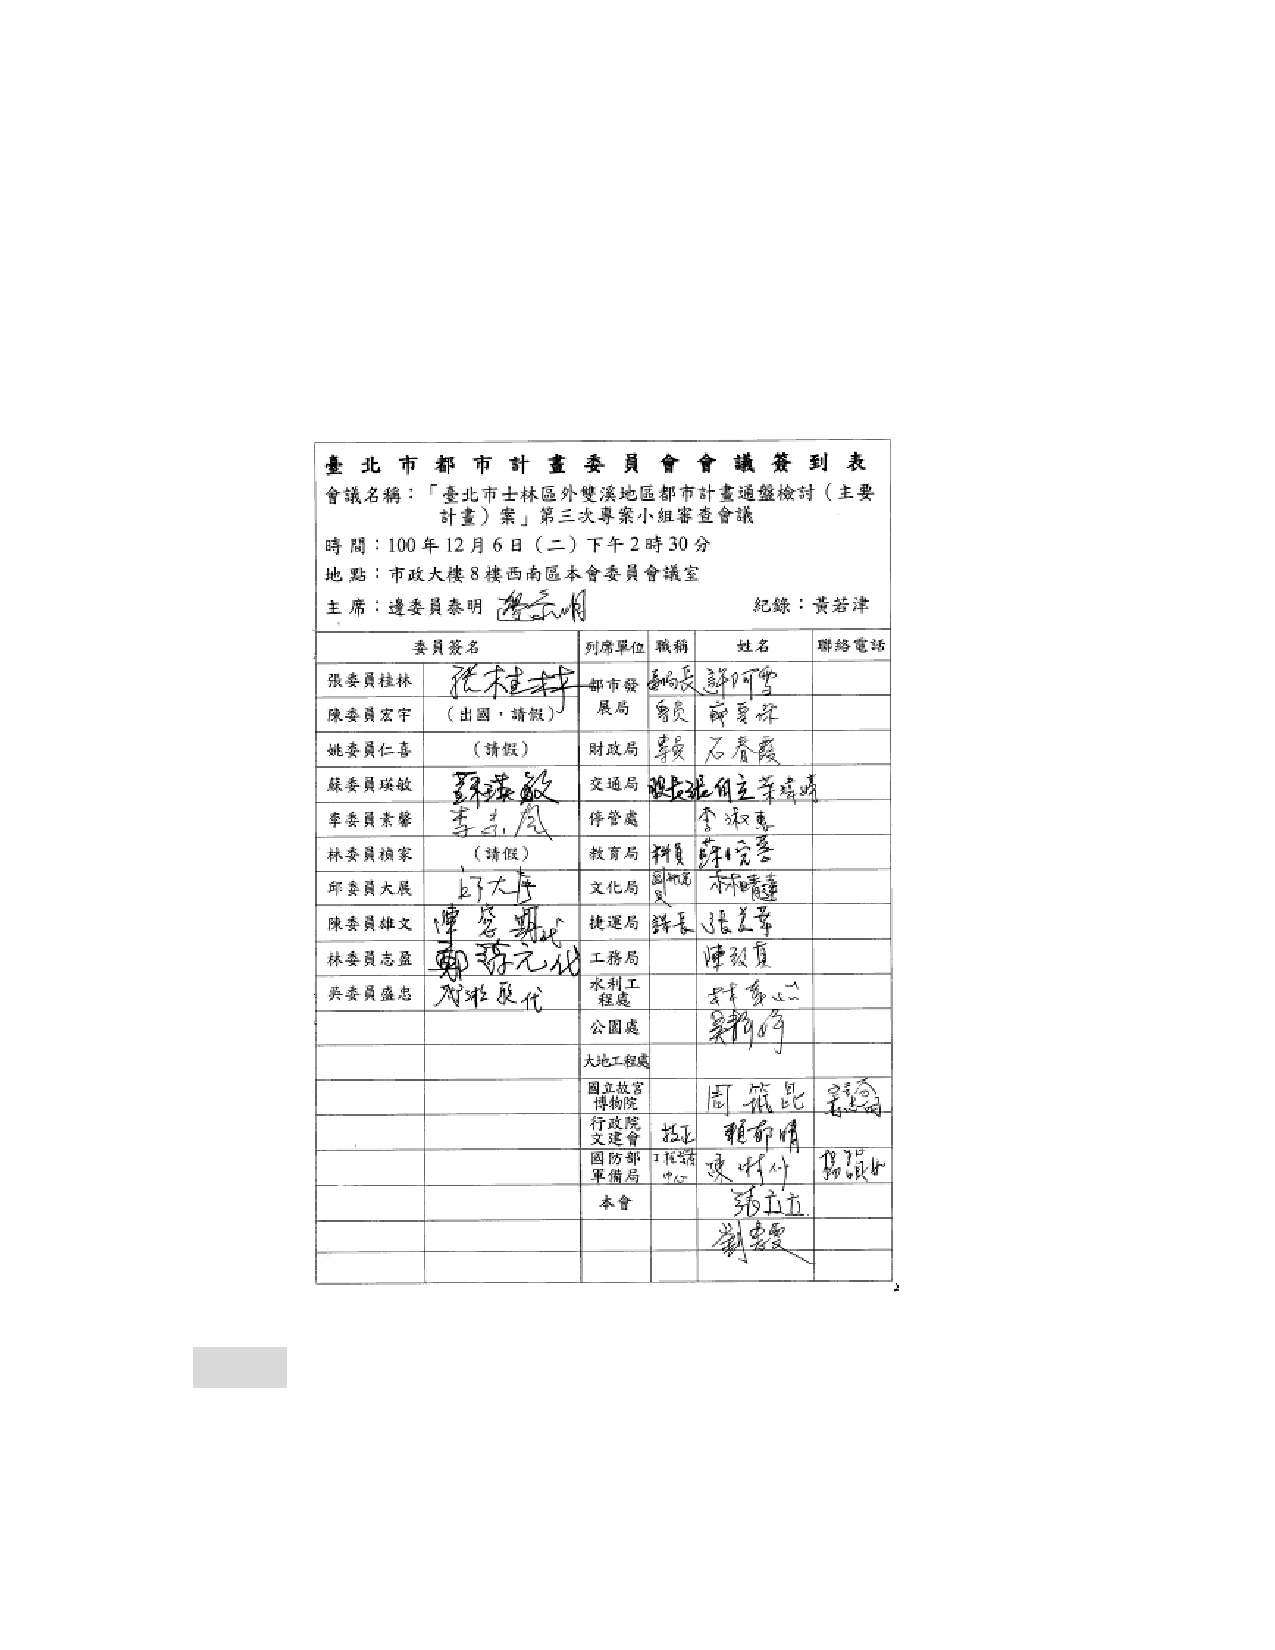 臺北市都市計畫委員會會議簽到表
會議名稱：「臺北市士林區外雙溪地區都市計畫通盤檢討（主要
計畫）案」第三次專案小組審查會議
時 間：100 年 12 月 6 日（二）下午 2 時 30 分
地 點：市政大樓 8 樓西南區本會委員會議室
主 席：邊委員泰明 邊泰明 紀錄：黃若津
委員簽名 列席單位 職稱 姓名 聯絡電話
張委員桂林 張桂林 都市發展局 副局長 許阿雪
陳委員宏宇 （出國，請假） 專員
姚委員仁喜 （請假） 財政局 專員 石春霞
蘇委員瑛敏 蘇瑛敏 交通局 股長
李委員素馨 李素馨 停管處 李淑惠
林委員禎家 （請假） 教育局 科員
邱委員大展 邱大展 文化局 林晴達
陳委員雄文 陳容期代 捷運局 課長 張美華
林委員志盈 代 工務局
吳委員盛忠 代 水利工程處
公園處
大地工程處
國立故宮博物院 周筑昆
行政院文建會 技正 賴郁晴
國防部軍備局 中心
本會 張立立